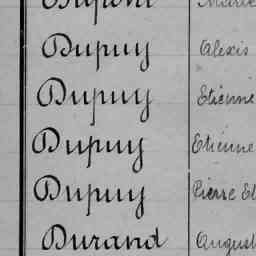 Dupont Marie
Dupuy Alexis
Dupuy Etienne
Dupuy Etienne
Dupuy Pierre
Durand August